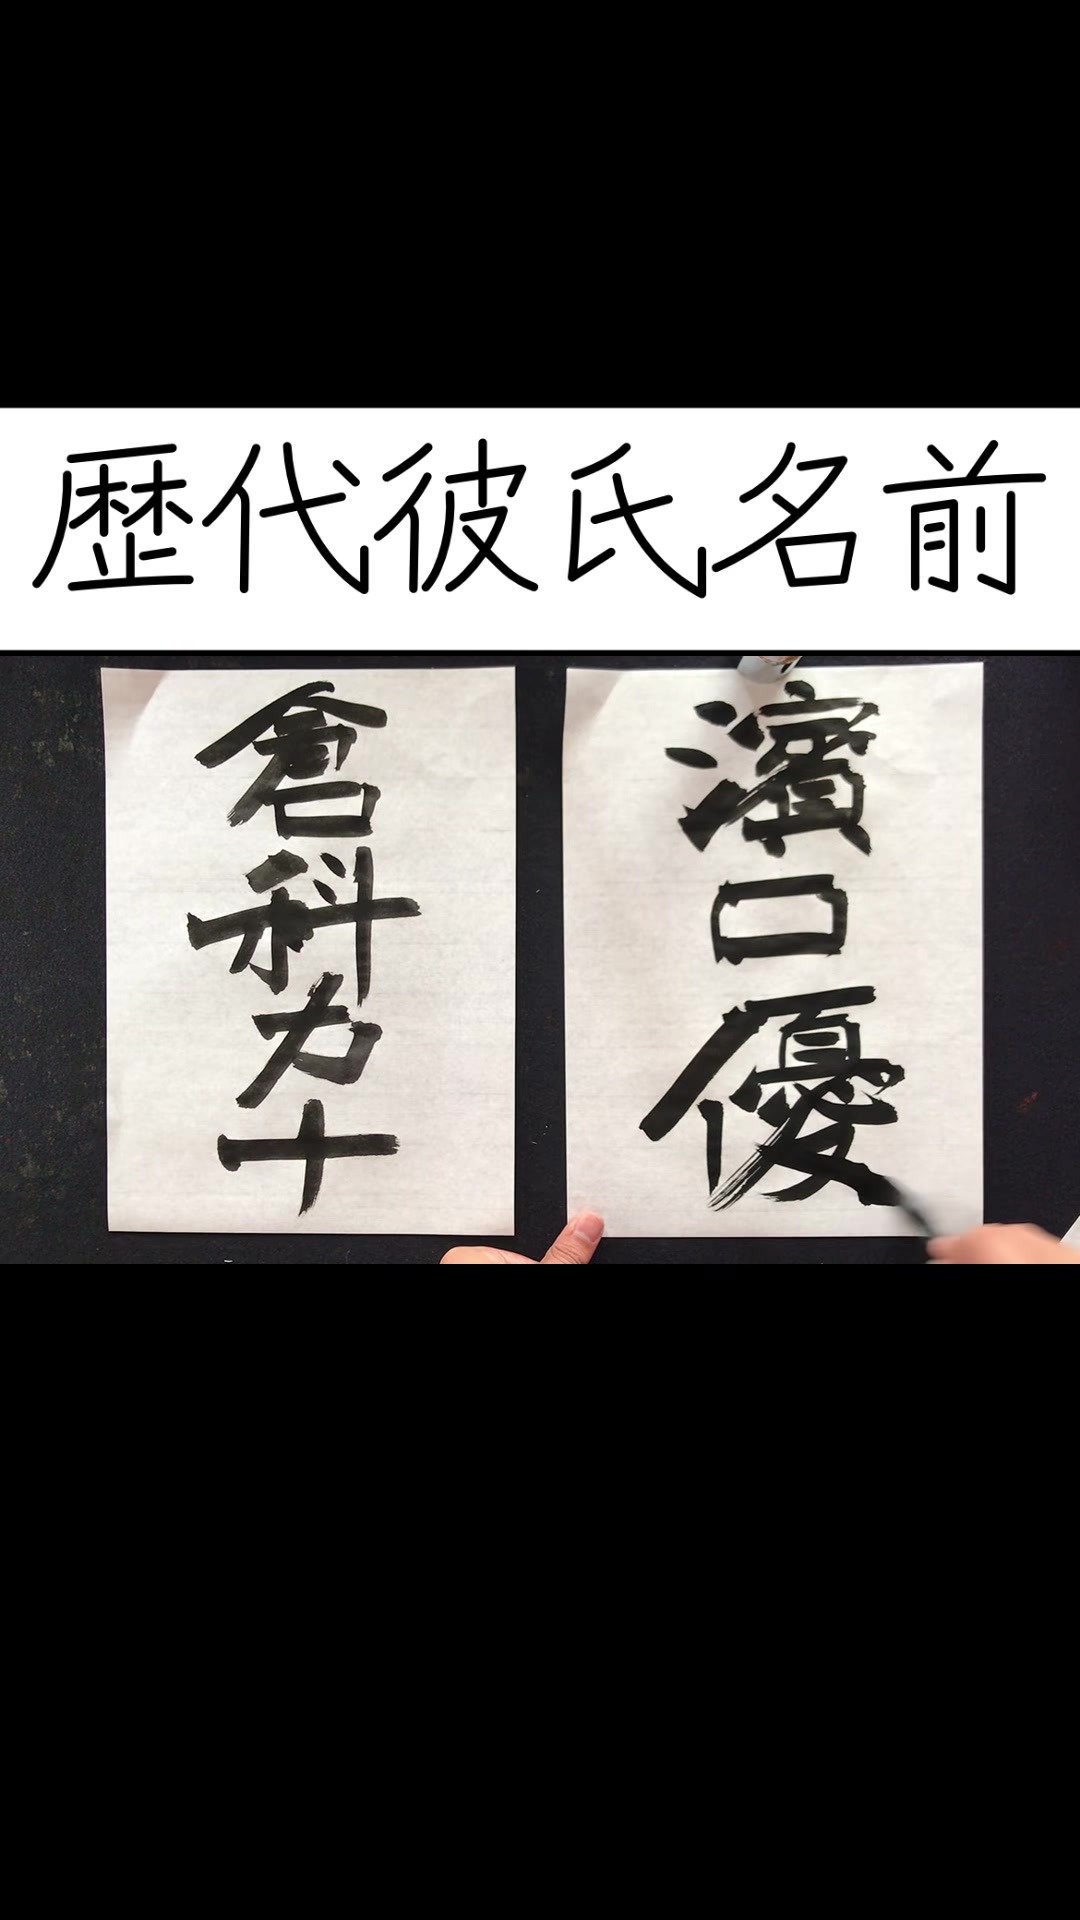 歴代彼氏名前
倉科カナ
濱口優